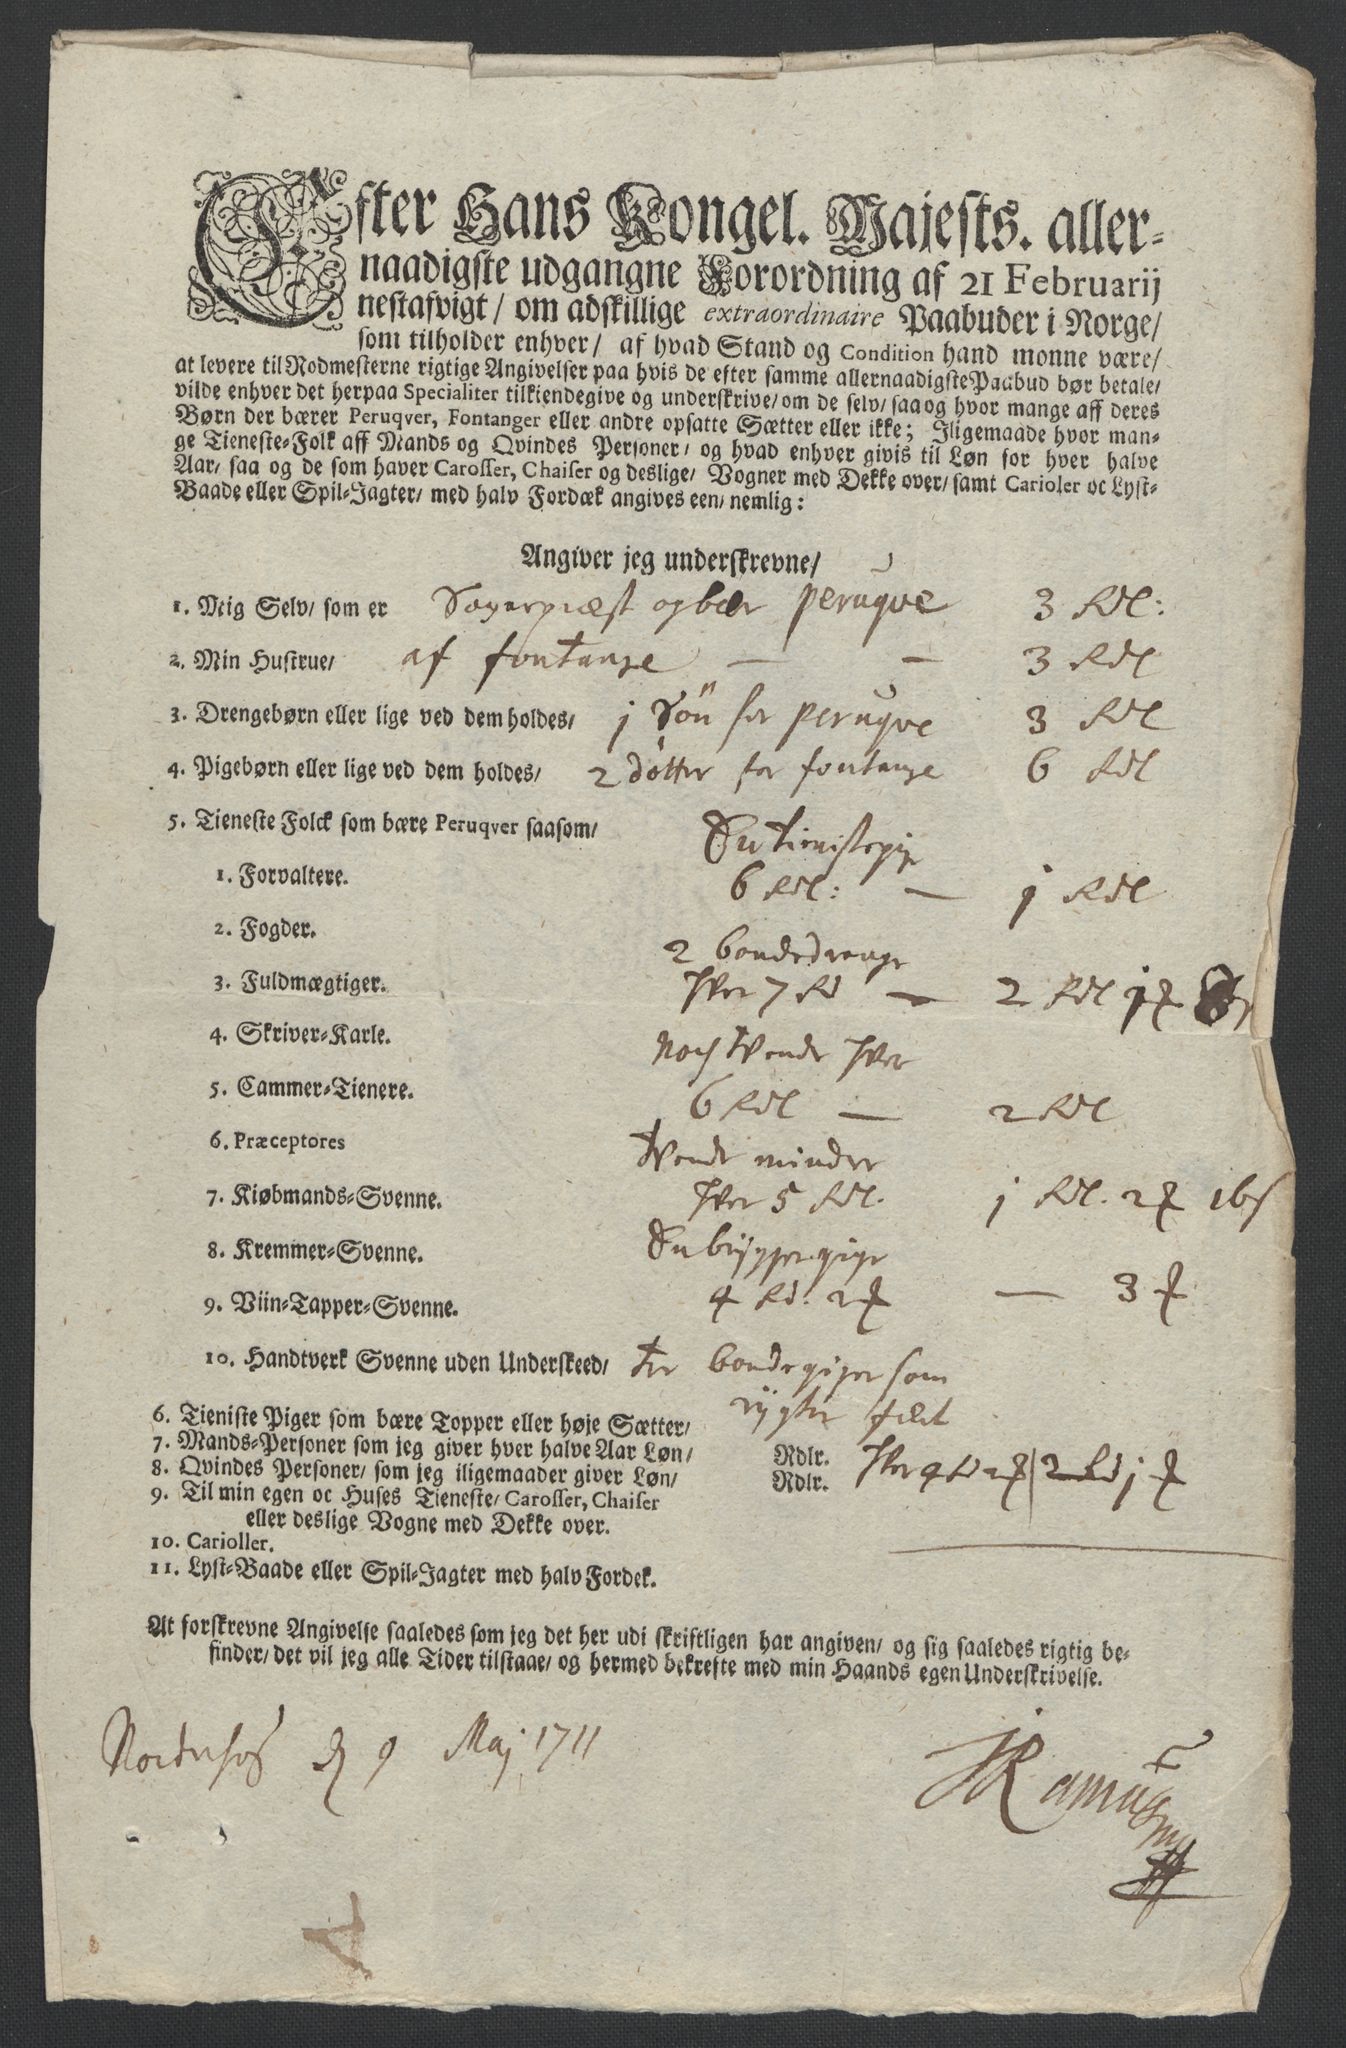 Efter Hans Kongel. Majests. aller-
naadigste udgangne Forordning af 21 Februarij
nestafvigt/ om adskillige extraordinaire Paabuder i Norge/
som tilholder enhver/ af hvad Stand og Condition hand monne være/
at levere til Rodmesterne rigtige Angivelser paa hvis de efter samme allernaadigste Paabud bør betale/
vilde enhver det herpaa Specialiter tilkiendegive og underskrive/ om de selv/ saa og hvor mange aff deres
Børn der bærer Peruqver, Fontanger eller andre opsatte Sætter eller ikke; Iligemaade hvor man-
ge Tieneste-Folk aff Mands og Qvindes Personer/ og hvad enhver givis til Løn for hver halve
Aar/ saa og de som haver Carosser, Chaiser og deslige/ Vogner med Dekke over/ samt Carioler oc Lyst-
Baade eller Spil-Jagter/ med halv Fordæk angives een/ nemlig:
Angiver jeg underskrevne/
1. Mig Selv/ som er Sognepræst og bær peruqve 3 Rdl:
2. Min Hustrue/ af fontange — — 3 Rdl
3. Drengebørn eller lige ved dem holdes/ 1 Søn for peruqve 3 Rdl
4. Pigebørn eller lige ved dem holdes/ 2 døtter for fontange 6 Rdl
5. Tieneste Folck som bære Peruqver saasom/ En tienistepige
1. Forvaltere. 6 Rdl: — 1 Rdl
2. Fogder. 2 bondedrenge
3. Fuldmægtiger. Hver 7 Rd — 2 Rdl 1
4. Skriver-Karle. Noch tvende Hver
5. Cammer-Tienere. 6 Rdl — 2 Rdl
6. Præceptores tvende mindre
7. Kiøbmands-Svenne. Hver 5 Rdl. 1 Rdl. 2 16
8. Kremmer-Svenne. En bryggerpige
9. Viin-Tapper-Svenne. 4 Rd. 2 — 3
10. Handtverk Svenne uden Underskeed/ tre bondepiger som
rygter fæet
6. Tieniste Piger som bære Topper eller høje Sætter/
7. Mands-Personer som jeg giver hver halve Aar Løn/ Rdlr.
8. Qvindes Personer/ som jeg iligemaader giver Løn/ Rdlr. Hver 4 Rd 2 2 Rd 1
9. Til min egen oc Huses Tieneste/ Carosser, Chaiser
eller deslige Vogne med Dekke over.
10. Carioller.
11. Lyst-Baade eller Spil-Jagter med halv Fordek.
At forskrevne Angivelse saaledes som jeg det her udi skriftligen har angiven/ og sig saaledes rigtig be-
finder/ det vil jeg alle Tider tilstaae/ og hermed bekrefte med min Haands egen Underskrivelse.
Norderhof d 9 Maj 1711
JRamus